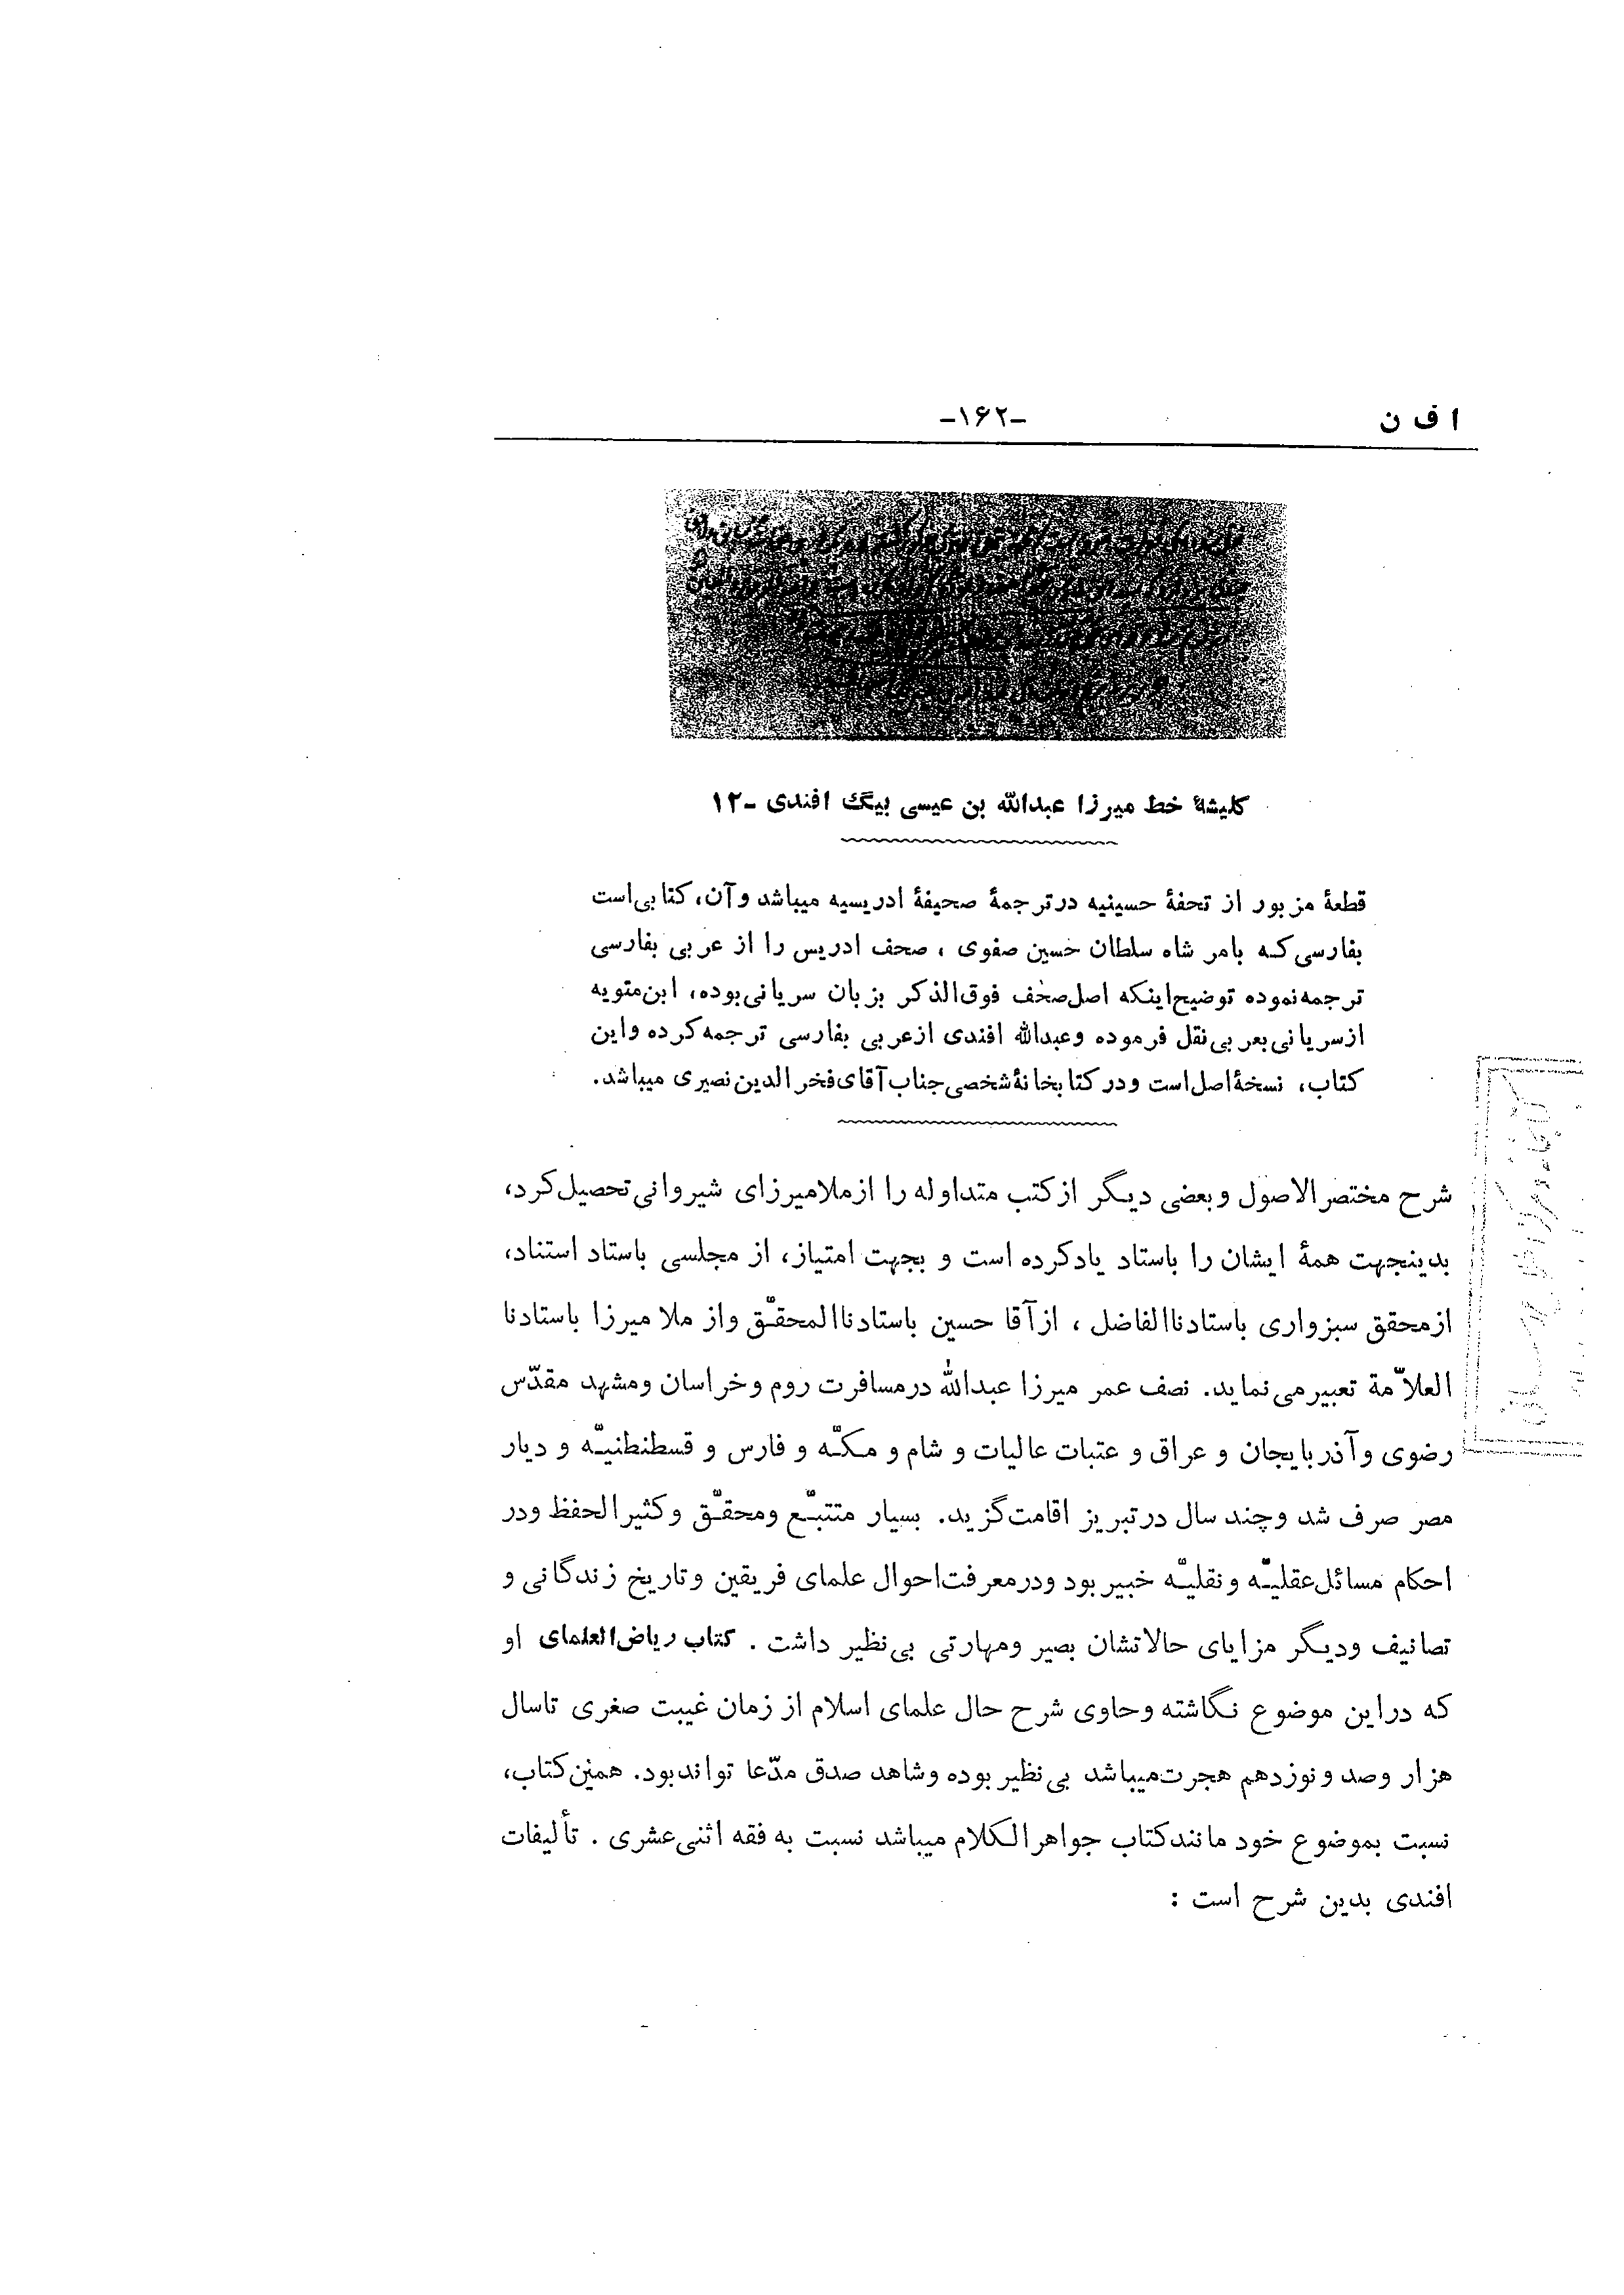 ا ف ن
-۱۶۲-
کلیشهٔ خط میرزا عبدالله بن عیسی بیگ افندی -۱۲
قطعهٔ مزبور از تحفهٔ حسینیه درترجمهٔ صحیفهٔ ادریسیه میباشد وآن، کتابی‌است
بفارسی‌که بامر شاه سلطان حسین صفوی ، صحف ادریس را از عربی بفارسی
ترجمه‌نموده توضیح‌اینکه اصل‌صحف فوق‌الذکر بزبان سریانی‌بوده، ابن‌متویه
ازسریانی‌بعربی‌نقل فرموده وعبدالله افندی ازعربی بفارسی ترجمه‌کرده واین
کتاب، نسخهٔ‌اصل‌است ودرکتابخانهٔ‌شخصی‌جناب‌آقای‌فخرالدین‌نصیری میباشد.
شرح مختصرالاصول وبعضی دیگر ازکتب متداوله را ازملامیرزای شیروانی‌تحصیل‌کرد،
بدینجهت همهٔ ایشان را باستاد یادکرده است و بجهت امتیاز، از مجلسی باستاد استناد،
ازمحقق سبزواری باستادناالفاضل ، ازآقا حسین باستادناالمحقّق واز ملا میرزا باستادنا
العلاّمة تعبیرمی‌نماید. نصف عمر میرزا عبدالله درمسافرت روم وخراسان ومشهد مقدّس
رضوی وآذربایجان و عراق و عتبات عالیات و شام و مکّه و فارس و قسطنطنیّه و دیار
مصر صرف شد وچند سال درتبریز اقامت‌گزید. بسیار متتبّع ومحقّق وکثیرالحفظ ودر
احکام مسائل‌عقلیّه ونقلیّه خبیربود ودرمعرفت‌احوال علمای فریقین وتاریخ زندگانی و
تصانیف ودیگر مزایای حالاتشان بصیر ومهارتی بی‌نظیر داشت . کتاب ریاض‌العلمای او
که دراین موضوع نگاشته وحاوی شرح حال علمای اسلام از زمان غیبت صغری تاسال
هزار وصد ونوزدهم هجرت‌میباشد بی‌نظیربوده وشاهد صدق مدّعا تواندبود. همین‌کتاب،
نسبت بموضوع خود مانندکتاب جواهرالکلام میباشد نسبت به فقه اثنی‌عشری . تألیفات
افندی بدین شرح است :